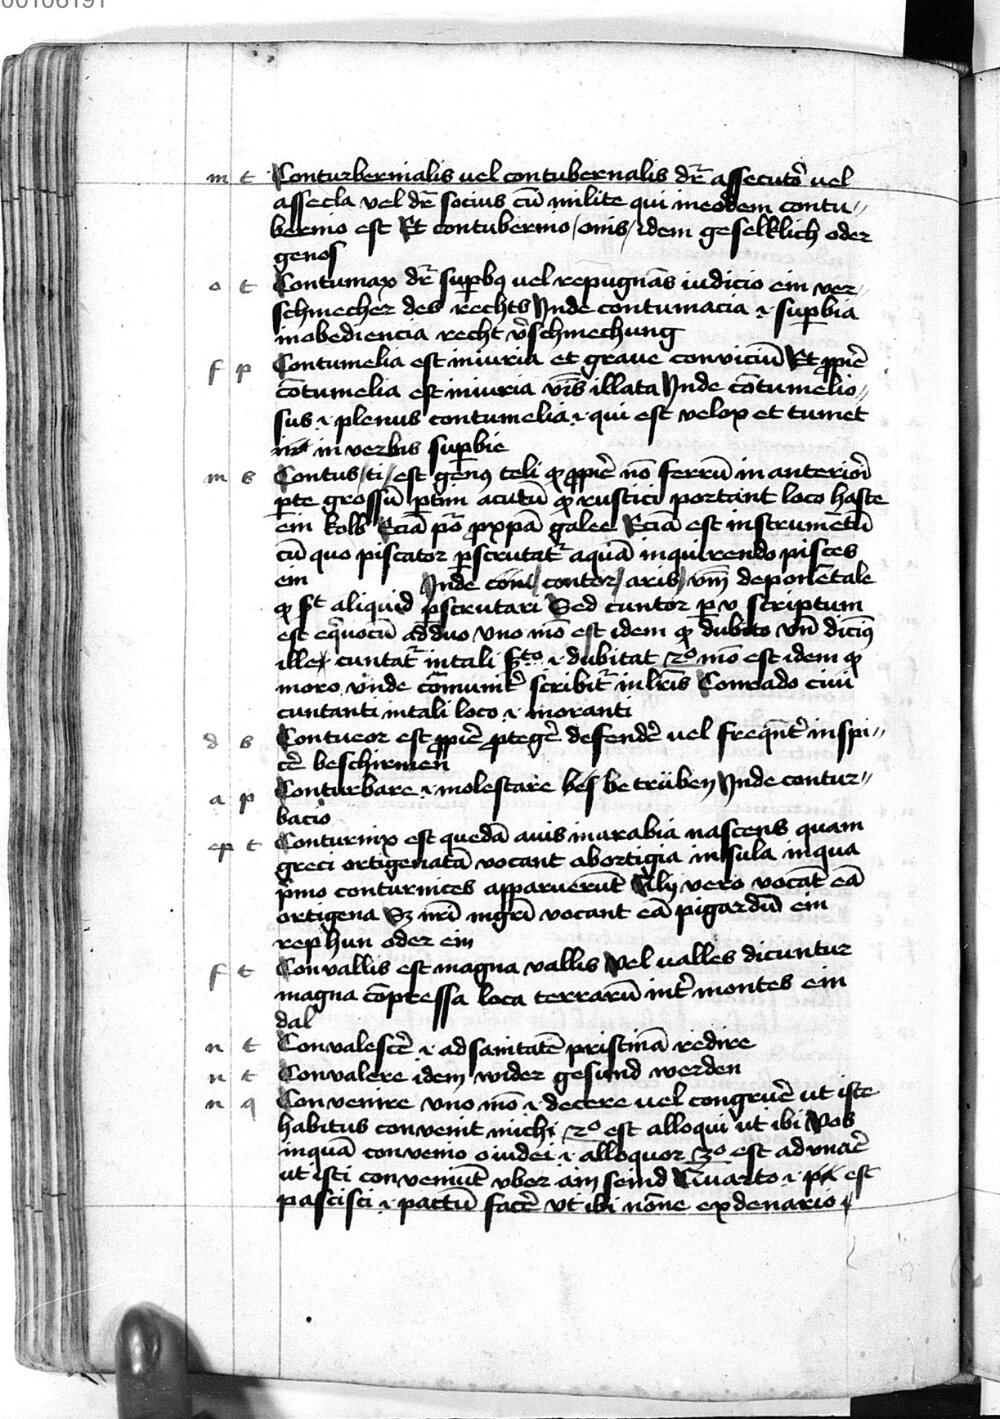 00106191
m t Conturbernialis uel contubernalis dr̄ assecutor̄ uel
assecla vel dr̄ socius cū milite qui ineodem contu⸗
bernio est Et contubernio / onis / idem geselklich oder
genos
o t Contumax dr̄ supbꝰ uel repugnās iudicio ein ver⸗
schmecher des rechts Inde contumacia ⁊ supbia
inobediencia recht v̄schmechung
f p Contumelia est iniuria et graue conviciū Et ꝓpīe
cōtumelia est iniuria v̄bis illata Inde cōtumelio⸗
sus ⁊ plenus contumelia ⁊ qui est velox et tumet
in verbis supbie
m s Contus / ti / est genꝰ teli qͦ ꝓpīe nō ferrū in anteriori
pte grossū ptim acutū qͦ rustici portant loco haste
ein kolb Eciā galee Eciā est instrumētū
cū quo piscator pscrutat̄ aquā inquirendo pisces
ein Inde contor / aris / vm̄ deponētale
qͦ st̄ aliquid pscrutari Sed cuntor p v scriptum
est eq̄uocū ad duo vno mō est idem qͦ dubito vn̄ diciꝰ
ille cuntat̄ in tali sc̄to ⁊ dubitat 2º mō est idem qͦ
moro vnde cōmunit̄ scribit̄ in lr̄is Conrado ciui
cuntanti in tali loco ⁊ moranti
d s Contueor est ꝓpīe ꝓtegē defendē uel freqn̄t̄ inspi⸗
cē beschirmen
a p Conturbare ⁊ molestare betrüben Inde contur⸗
bacio
ep t Conturnix est quedā auis in arabia nascens quam
greci ortigenatā vocant ab ortigia insula in qua
p̄mo conturnices apparuerūt Alij vero vocāt eā
ortigena Sꝫ nr̄i mgr̄i vocant eā pigardū ein
rephun oder ein
f t Convallis est magna vallis Vel ualles dicuntur
magna cōpressa loca terrarū int̄ montes ein
dal
n t Convalescē ⁊ ad sanitatē pristinā redire
n t Convalere idem wider gesund werden
n q Convenire vno mō ⁊ decere uel congruē ut iste
habitus convenit michi 2º est alloqui ut ibi Vos
inquā convenio o iudei ⁊ alloquor 3º est adunaē
ut isti conveniūt vber ain seind Quarto ⁊ est
pascisci ⁊ pactū facē vt ibi nōne ex denario